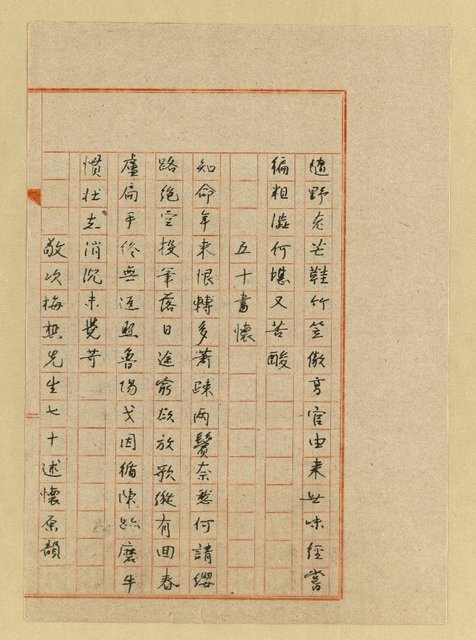 隨野老芒鞋竹笠傲高官由來世味經嘗
徧粗澁何堪又苦酸
五十書懷
知命年來恨轉多蕭疎兩鬢奈愁何請纓
路絕空投筆落日途窮欲放歌縱有回春
盧扁手終無返照魯陽戈因循陳跡磨牛
慣壯志消沉未覺苛
敬次梅樵先生七十述懷原韻